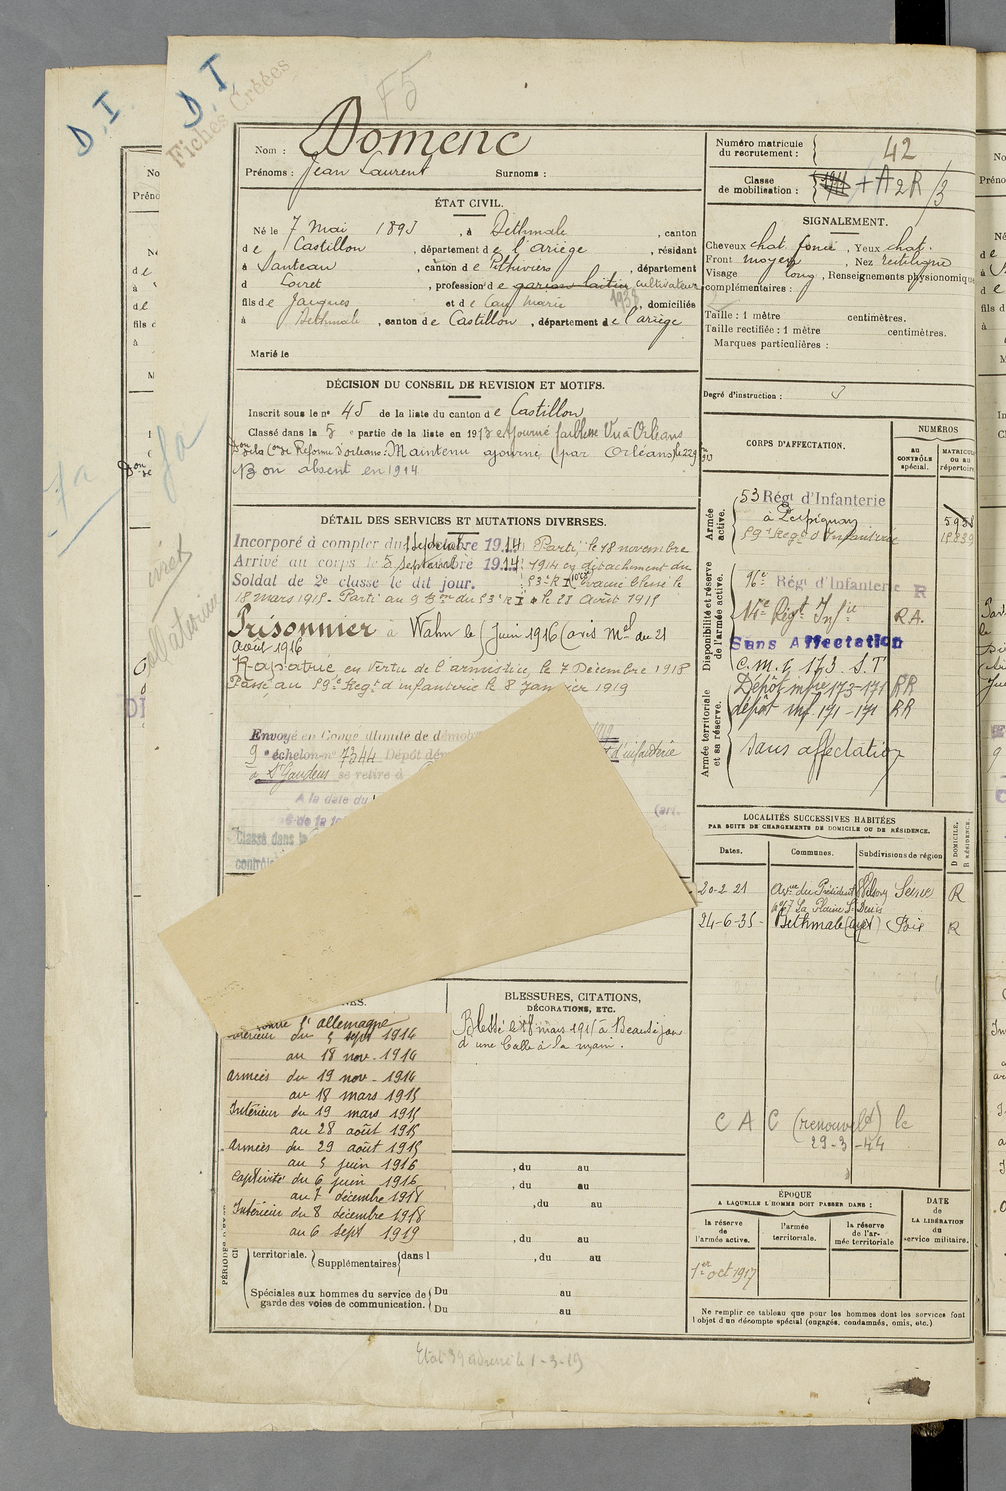 D.I.
D.I.
Fiches Créées
F5
Nom : Domenc
Prénoms : Jean Laurent Surnoms :
Numéro matricule du recrutement : 42
Classe de mobilisation : + A 2 R /3
ÉTAT CIVIL.
Né le 7 Mai 1893, à Bethmale, canton
de Castillon, département de l'ariège, résidant
à Santeau, canton de Pithiviers, département
d Loiret, profession de garçon laitier cultivateur
1938
fils de Jacques et de Marie domiciliés
à Bethmale, canton de Castillon, département de l'ariège
Marié le
SIGNALEMENT.
Cheveux chat. foncé, Yeux chat.
Front moyen, Nez rectiligne
Visage long, Renseignements physionomique
complémentaires :
Taille : 1 mètre centimètres.
Taille rectifiée : 1 mètre centimètres.
Marques particulières :
Degré d'instruction : 3
DÉCISION DU CONSEIL DE REVISION ET MOTIFS.
Inscrit sous le n° 45 de la liste du canton de Castillon
Classé dans la 5e partie de la liste en 1913 ajourné faiblesse Vu à Orléans
Don de la Con de Réforme d'orléans : Maintenu ajourné (par Orléans)
Bon absent en 1914
DÉTAIL DES SERVICES ET MUTATIONS DIVERSES.
Incorporé à compter du septembre 1914 Parti le 18 novembre
Arrivé au corps le 5 septembre 1914 1914 en détachement du
Soldat de 2e classe le dit jour. 53e R I évacué blessé le
18 mars 1915. Parti au 9 Bon du 53e R I le 28 Août 1915
Prisonnier à Wahn le 5 juin 1916 (avis Mel du 21
août 1916
Rapatrié en vertu de l'armistice, le 7 Décembre 1918
Passé au 59e Regt d'infanterie le 8 Janvier 1919
Envoyé en Congé illimité de démob
9e échelon n° 7344 Dépôt dém
d'infanterie
à St Gaudens se retire à
A la date du
(art.
Classé dans le
contrôle
CORPS D'AFFECTATION.
NUMÉROS
au CONTRÔLE spécial.
MATRICULE ou au répertoire
Armée active.
53 Régt d'Infanterie
à Perpignan
59e Regt d'Infanterie
Disponibilité et réserve de l'armée active.
16e Régt d'Infanterie R
14e Régt Infie RA.
Sans Affectation
C.M.I 173 S.T
Armée territoriale et sa réserve.
Dépôt mfie 173-171 RR
dépôt inf 171-171 RR
Sans affectation
LOCALITÉS SUCCESSIVES HABITÉES
PAR SUITE DE CHANGEMENTS DE DOMICILE OU DE RÉSIDENCE.
Dates. Communes. Subdivisions de région
D DOMICILE.
R RÉSIDENCE.
20-2 21 Avue du Président Wilson Seine R
La Plaine St Denis
24-6-35- Bethmale Foix R
C A C (renouvelé) le
29-3-44
BLESSURES, CITATIONS,
DÉCORATIONS, ETC.
Blessé le 18 mars 1915 à Beauséjour
d'une balle à la main.
contre l'allemagne
Intérieur du 5 sept 1914
au 18 nov. 1914
Armées du 19 nov. 1914
au 18 mars 1915
Intérieur du 19 mars 1915
au 28 août 1915
Armées du 29 août 1915
au 5 juin 1916
Captivité du 6 juin 1916
au 7 décembre 1918
Intérieur du 8 décembre 1918
au 6 sept 1919
, du au
, du au
, du au
, du au
territoriale. Supplémentaires dans l , du au
Spéciales aux hommes du service de garde des voies de communication.
Du au
Du au
ÉPOQUE
A LAQUELLE L'HOMME DOIT PASSER DANS :
la réserve de l'armée active.
l'armée territoriale.
la réserve de l'armée territoriale
DATE de LA LIBÉRATION du service militaire.
1er oct 1917
Ne remplir ce tableau que pour les hommes dont les services font
l'objet d'un décompte spécial (engagés, condamnés, omis, etc.)
Etat 39 adressé le 1-3-19